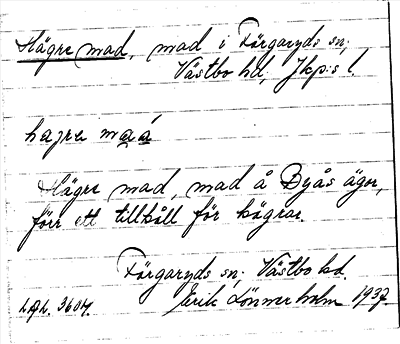 Hägre mad, mad i Färgaryds sn;
Västbo hd; Jkp:s l.
hagre maá
Hägre mad, mad å Byås ägor,
förr ett tillhåll för hägrar.
Färgaryds sn; Västbo hd.
LAL. 3604. Erik Lönnerholm 1937.